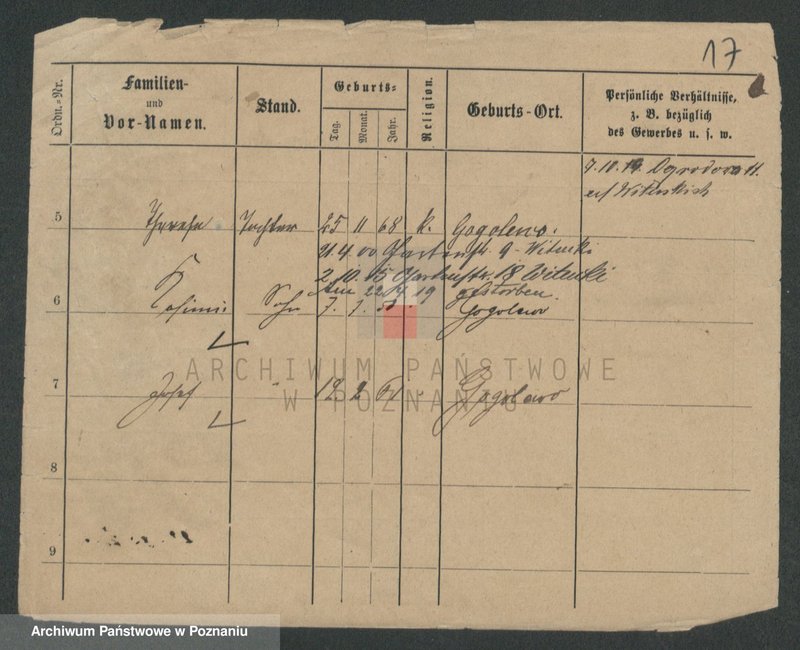 17
Ordn.=Nr.
Familien-
und
Vor-Namen.
Stand.
Geburts=
Tag.
Monat.
Jahr.
Religion.
Geburts-Ort.
Persönliche Verhältnisse,
z. B. bezüglich
des Gewerbes u. s. w.
7.10.19. Ogrodowa 11.
Witenskich
5 Therese Tochter 25 11 68 k. Gogolewo.
21.4.00 Gartenstr. 9 Witucki
2.10.15 Gartenstr. 18 Witucki
Am 22. 19 gestorben.
6 Kasimir Sohn 7. 1. Gogolewo
7 Josef " 19. 2. Gogolewo
ARCHIWUM PAŃSTWOWE
W POZNANIU
8
9
Archiwum Państwowe w Poznaniu